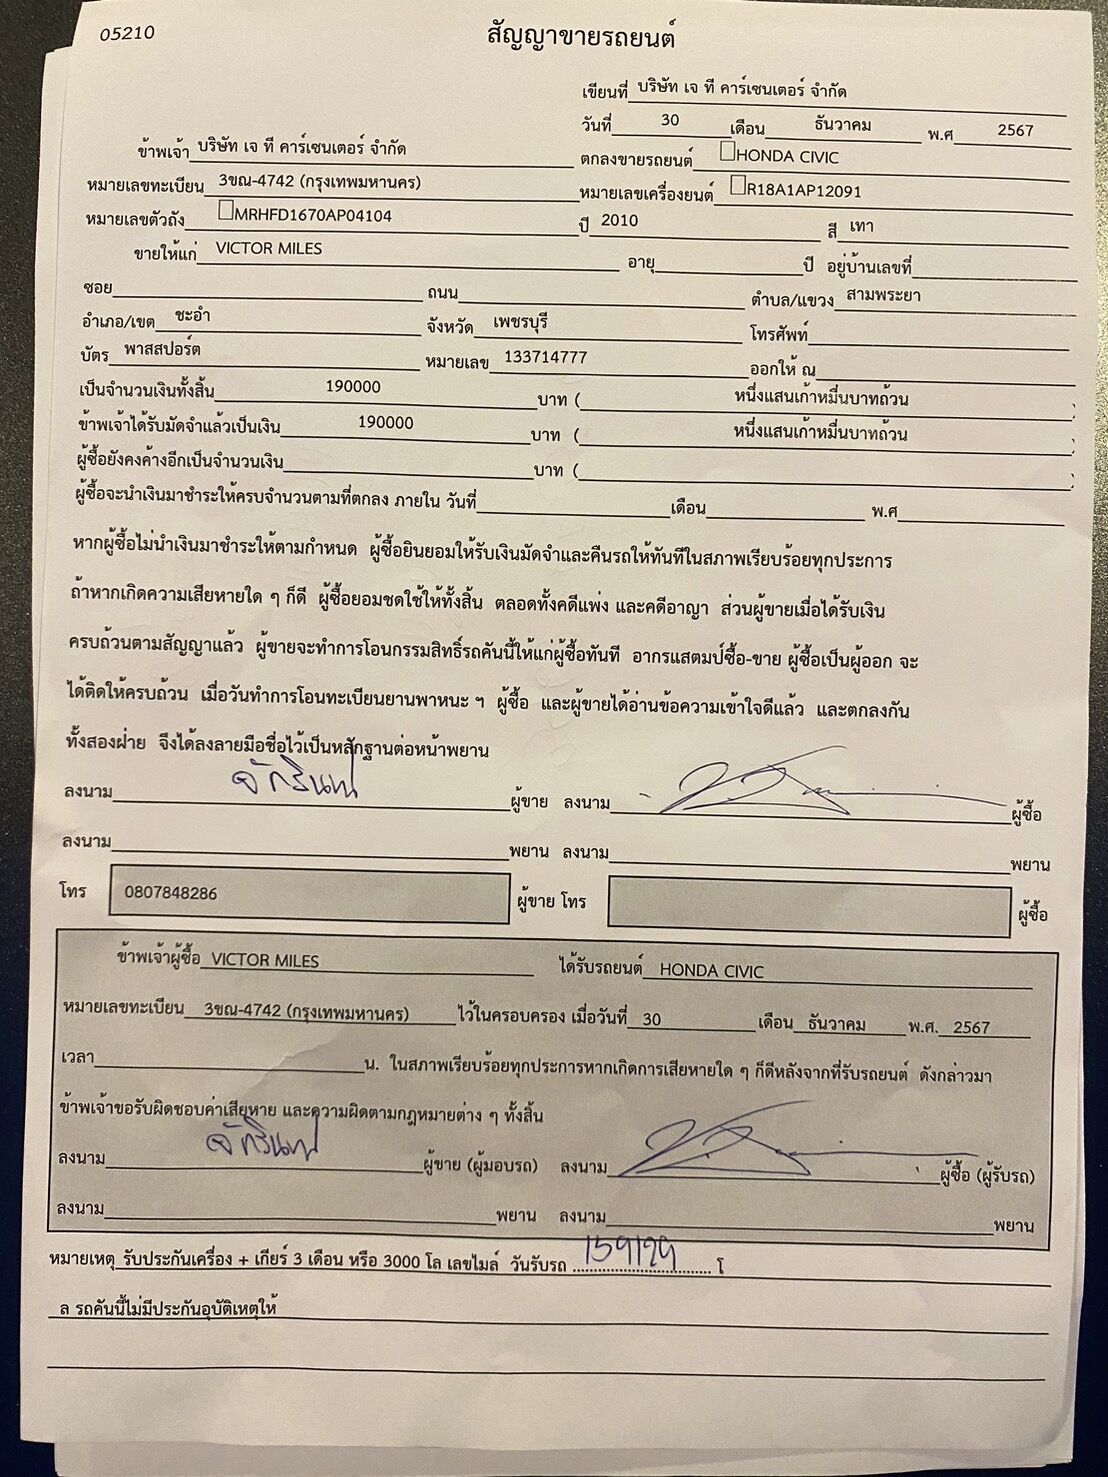 05210
สัญญาขายรถยนต์
เขียนที่ บริษัท เจ ที คาร์เซนเตอร์ จำกัด
วันที่ 30 เดือน ธันวาคม พ.ศ 2567
ข้าพเจ้า บริษัท เจ ที คาร์เซนเตอร์ จำกัด ตกลงขายรถยนต์ HONDA CIVIC
หมายเลขทะเบียน 3ขณ-4742 (กรุงเทพมหานคร) หมายเลขเครื่องยนต์ R18A1AP12091
หมายเลขตัวถัง MRHFD1670AP04104 ปี 2010 สี เทา
ขายให้แก่ VICTOR MILES อายุ ปี อยู่บ้านเลขที่
ซอย ถนน ตำบล/แขวง สามพระยา
อำเภอ/เขต ชะอำ จังหวัด เพชรบุรี โทรศัพท์
บัตร พาสสปอร์ต หมายเลข 133714777 ออกให้ ณ
เป็นจำนวนเงินทั้งสิ้น 190000 บาท ( หนึ่งแสนเก้าหมื่นบาทถ้วน )
ข้าพเจ้าได้รับมัดจำแล้วเป็นเงิน 190000 บาท ( หนึ่งแสนเก้าหมื่นบาทถ้วน )
ผู้ซื้อยังคงค้างอีกเป็นจำนวนเงิน บาท ( )
ผู้ซื้อจะนำเงินมาชำระให้ครบจำนวนตามที่ตกลง ภายใน วันที่ เดือน พ.ศ
หากผู้ซื้อไม่นำเงินมาชำระให้ตามกำหนด ผู้ซื้อยินยอมให้รับเงินมัดจำและคืนรถให้ทันทีในสภาพเรียบร้อยทุกประการ
ถ้าหากเกิดความเสียหายใด ๆ ก็ดี ผู้ซื้อยอมชดใช้ให้ทั้งสิ้น ตลอดทั้งคดีแพ่ง และคดีอาญา ส่วนผู้ขายเมื่อได้รับเงิน
ครบถ้วนตามสัญญาแล้ว ผู้ขายจะทำการโอนกรรมสิทธิ์รถคันนี้ให้แก่ผู้ซื้อทันที อากรแสตมป์ซื้อ-ขาย ผู้ซื้อเป็นผู้ออก จะ
ได้ติดให้ครบถ้วน เมื่อวันทำการโอนทะเบียนยานพาหนะ ฯ ผู้ซื้อ และผู้ขายได้อ่านข้อความเข้าใจดีแล้ว และตกลงกัน
ทั้งสองฝ่าย จึงได้ลงลายมือชื่อไว้เป็นหลักฐานต่อหน้าพยาน
ลงนาม ผู้ขาย ลงนาม ผู้ซื้อ
ลงนาม พยาน ลงนาม พยาน
โทร 0807848286 ผู้ขาย โทร ผู้ซื้อ
ข้าพเจ้าผู้ซื้อ VICTOR MILES ได้รับรถยนต์ HONDA CIVIC
หมายเลขทะเบียน 3ขณ-4742 (กรุงเทพมหานคร) ไว้ในครอบครอง เมื่อวันที่ 30 เดือน ธันวาคม พ.ศ. 2567
เวลา น. ในสภาพเรียบร้อยทุกประการหากเกิดการเสียหายใด ๆ ก็ดีหลังจากที่รับรถยนต์ ดังกล่าวมา
ข้าพเจ้าขอรับผิดชอบค่าเสียหาย และความผิดตามกฎหมายต่าง ๆ ทั้งสิ้น
ลงนาม ผู้ขาย (ผู้มอบรถ) ลงนาม ผู้ซื้อ (ผู้รับรถ)
ลงนาม พยาน ลงนาม พยาน
หมายเหตุ รับประกันเครื่อง + เกียร์ 3 เดือน หรือ 3000 โล เลขไมล์ วันรับรถ 159129 โ
ล รถคันนี้ไม่มีประกันอุบัติเหตุให้